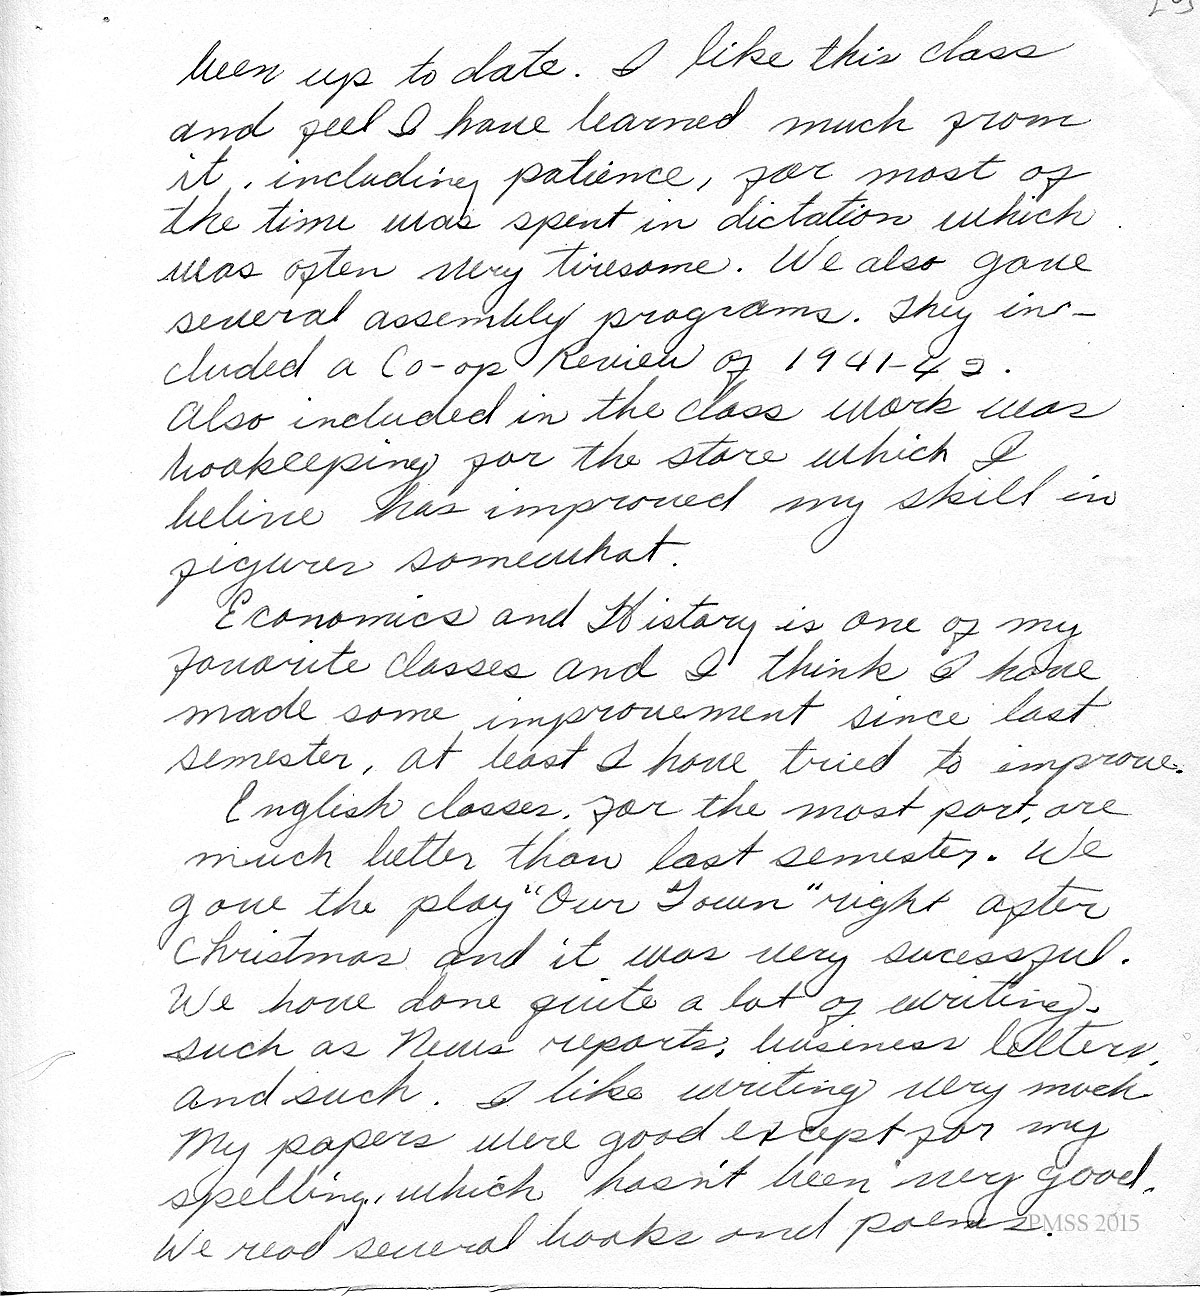 been up to date. I like this class
and feel I have learned much from
it, including patience, for most of
the time was spent in dictation which
was often very tiresome. We also gave
several assembly programs. They in-
cluded a Co-op Review of 1941-42.
Also included in the class work was
bookeeping for the store which I
belive has improved my skill in
figures somewhat.
Economics and History is one of my
favorite classes and I think I have
made some improvement since last
semester, at least I have tried to improve.
English classes, for the most part, are
much better than last semester. We
gave the play "Our Town" right after
Christmas and it was very sucessful.
We have done quite a lot of writing,
such as News reports, business letters,
and such. I like writing very much
My papers were good except for my
spelling, which hasn't been very good.
We read several books and poems.
PMSS 2015